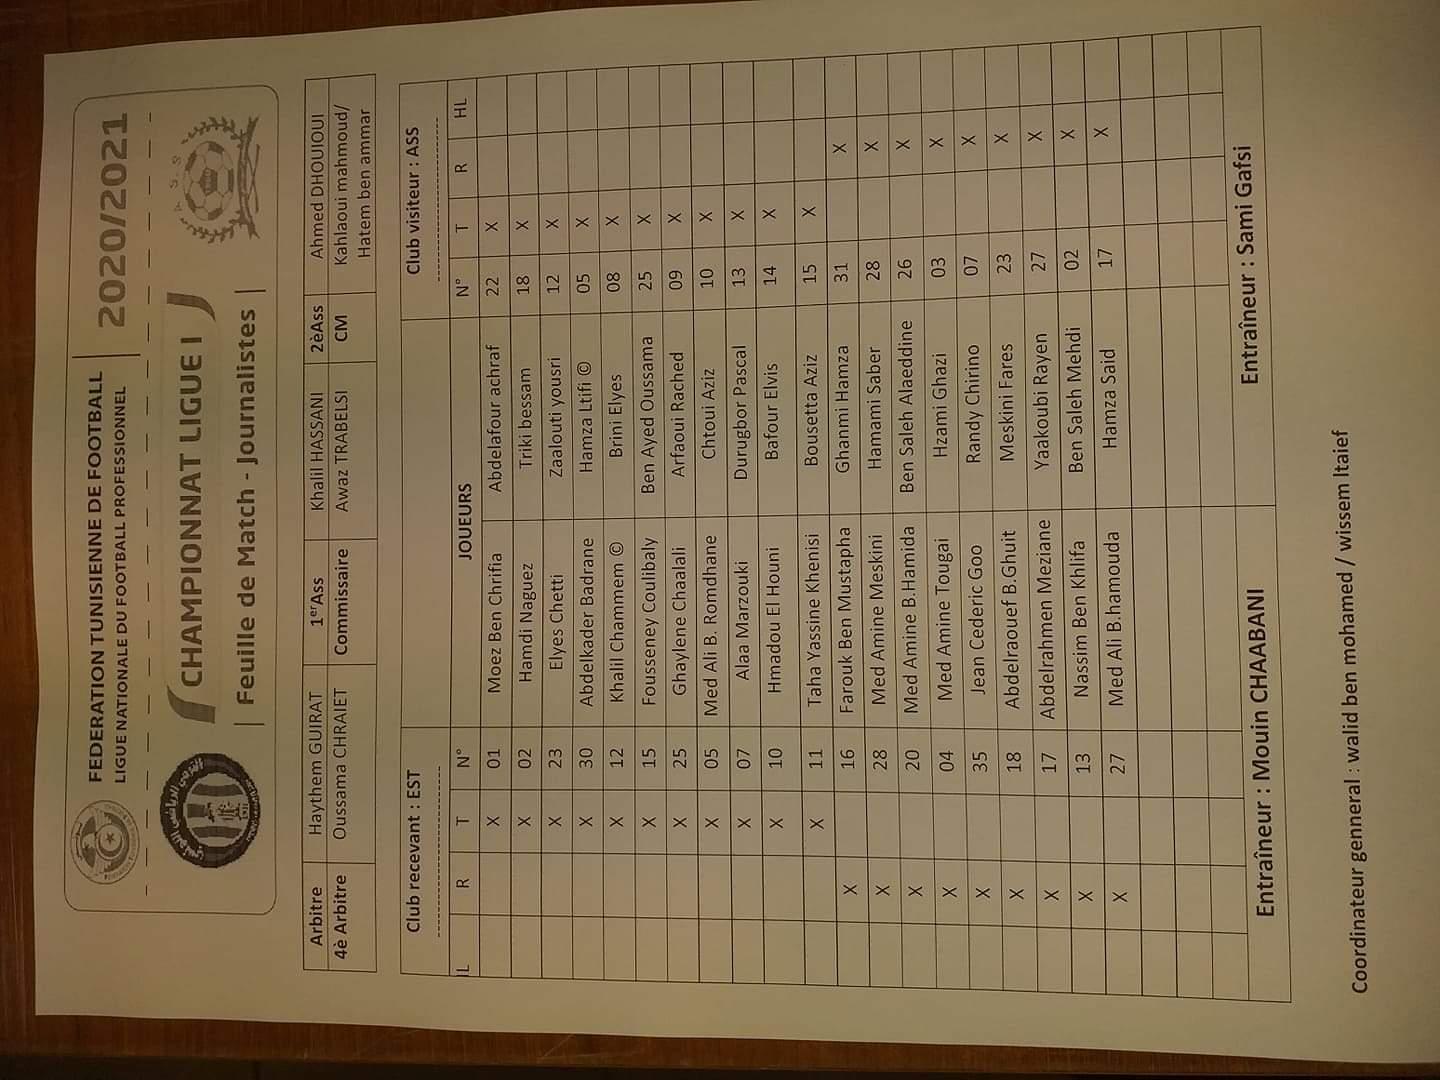 FEDERATION TUNISIENNE DE FOOTBALL
LIGUE NATIONALE DU FOOTBALL PROFESSIONNEL
2020/2021
CHAMPIONNAT LIGUE I
Feuille de Match - Journalistes
A S S
Arbitre Haythem GUIRAT 1erAss Khalil HASSANI 2èAss Ahmed DHOUIOUI
4è Arbitre Oussama CHRAIET Commissaire Awaz TRABELSI CM Kahlaoui mahmoud/
Hatem ben ammar
Club recevant : EST Club visiteur : ASS
IL R T N° JOUEURS N° T R HL
X 01 Moez Ben Chrifia Abdelafour achraf 22 X
X 02 Hamdi Naguez Triki bessam 18 X
X 23 Elyes Chetti Zaalouti yousri 12 X
X 30 Abdelkader Badrane Hamza Ltifi © 05 X
X 12 Khalil Chammem © Brini Elyes 08 X
X 15 Fousseney Coulibaly Ben Ayed Oussama 25 X
X 25 Ghaylene Chaalali Arfaoui Rached 09 X
X 05 Med Ali B. Romdhane Chtoui Aziz 10 X
X 07 Alaa Marzouki Durugbor Pascal 13 X
X 10 Hmadou El Houni Bafour Elvis 14 X
X 11 Taha Yassine Khenisi Bousetta Aziz 15 X
X 16 Farouk Ben Mustapha Ghanmi Hamza 31 X
X 28 Med Amine Meskini Hamami Saber 28 X
X 20 Med Amine B.Hamida Ben Saleh Alaeddine 26 X
X 04 Med Amine Tougai Hzami Ghazi 03 X
X 35 Jean Cederic Goo Randy Chirino 07 X
X 18 Abdelraouef B.Ghuit Meskini Fares 23 X
X 17 Abdelrahmen Meziane Yaakoubi Rayen 27 X
X 13 Nassim Ben Khlifa Ben Saleh Mehdi 02 X
X 27 Med Ali B.hamouda Hamza Said 17 X
Entraîneur : Mouin CHAABANI Entraîneur : Sami Gafsi
Coordinateur genneral : walid ben mohamed / wissem ltaief